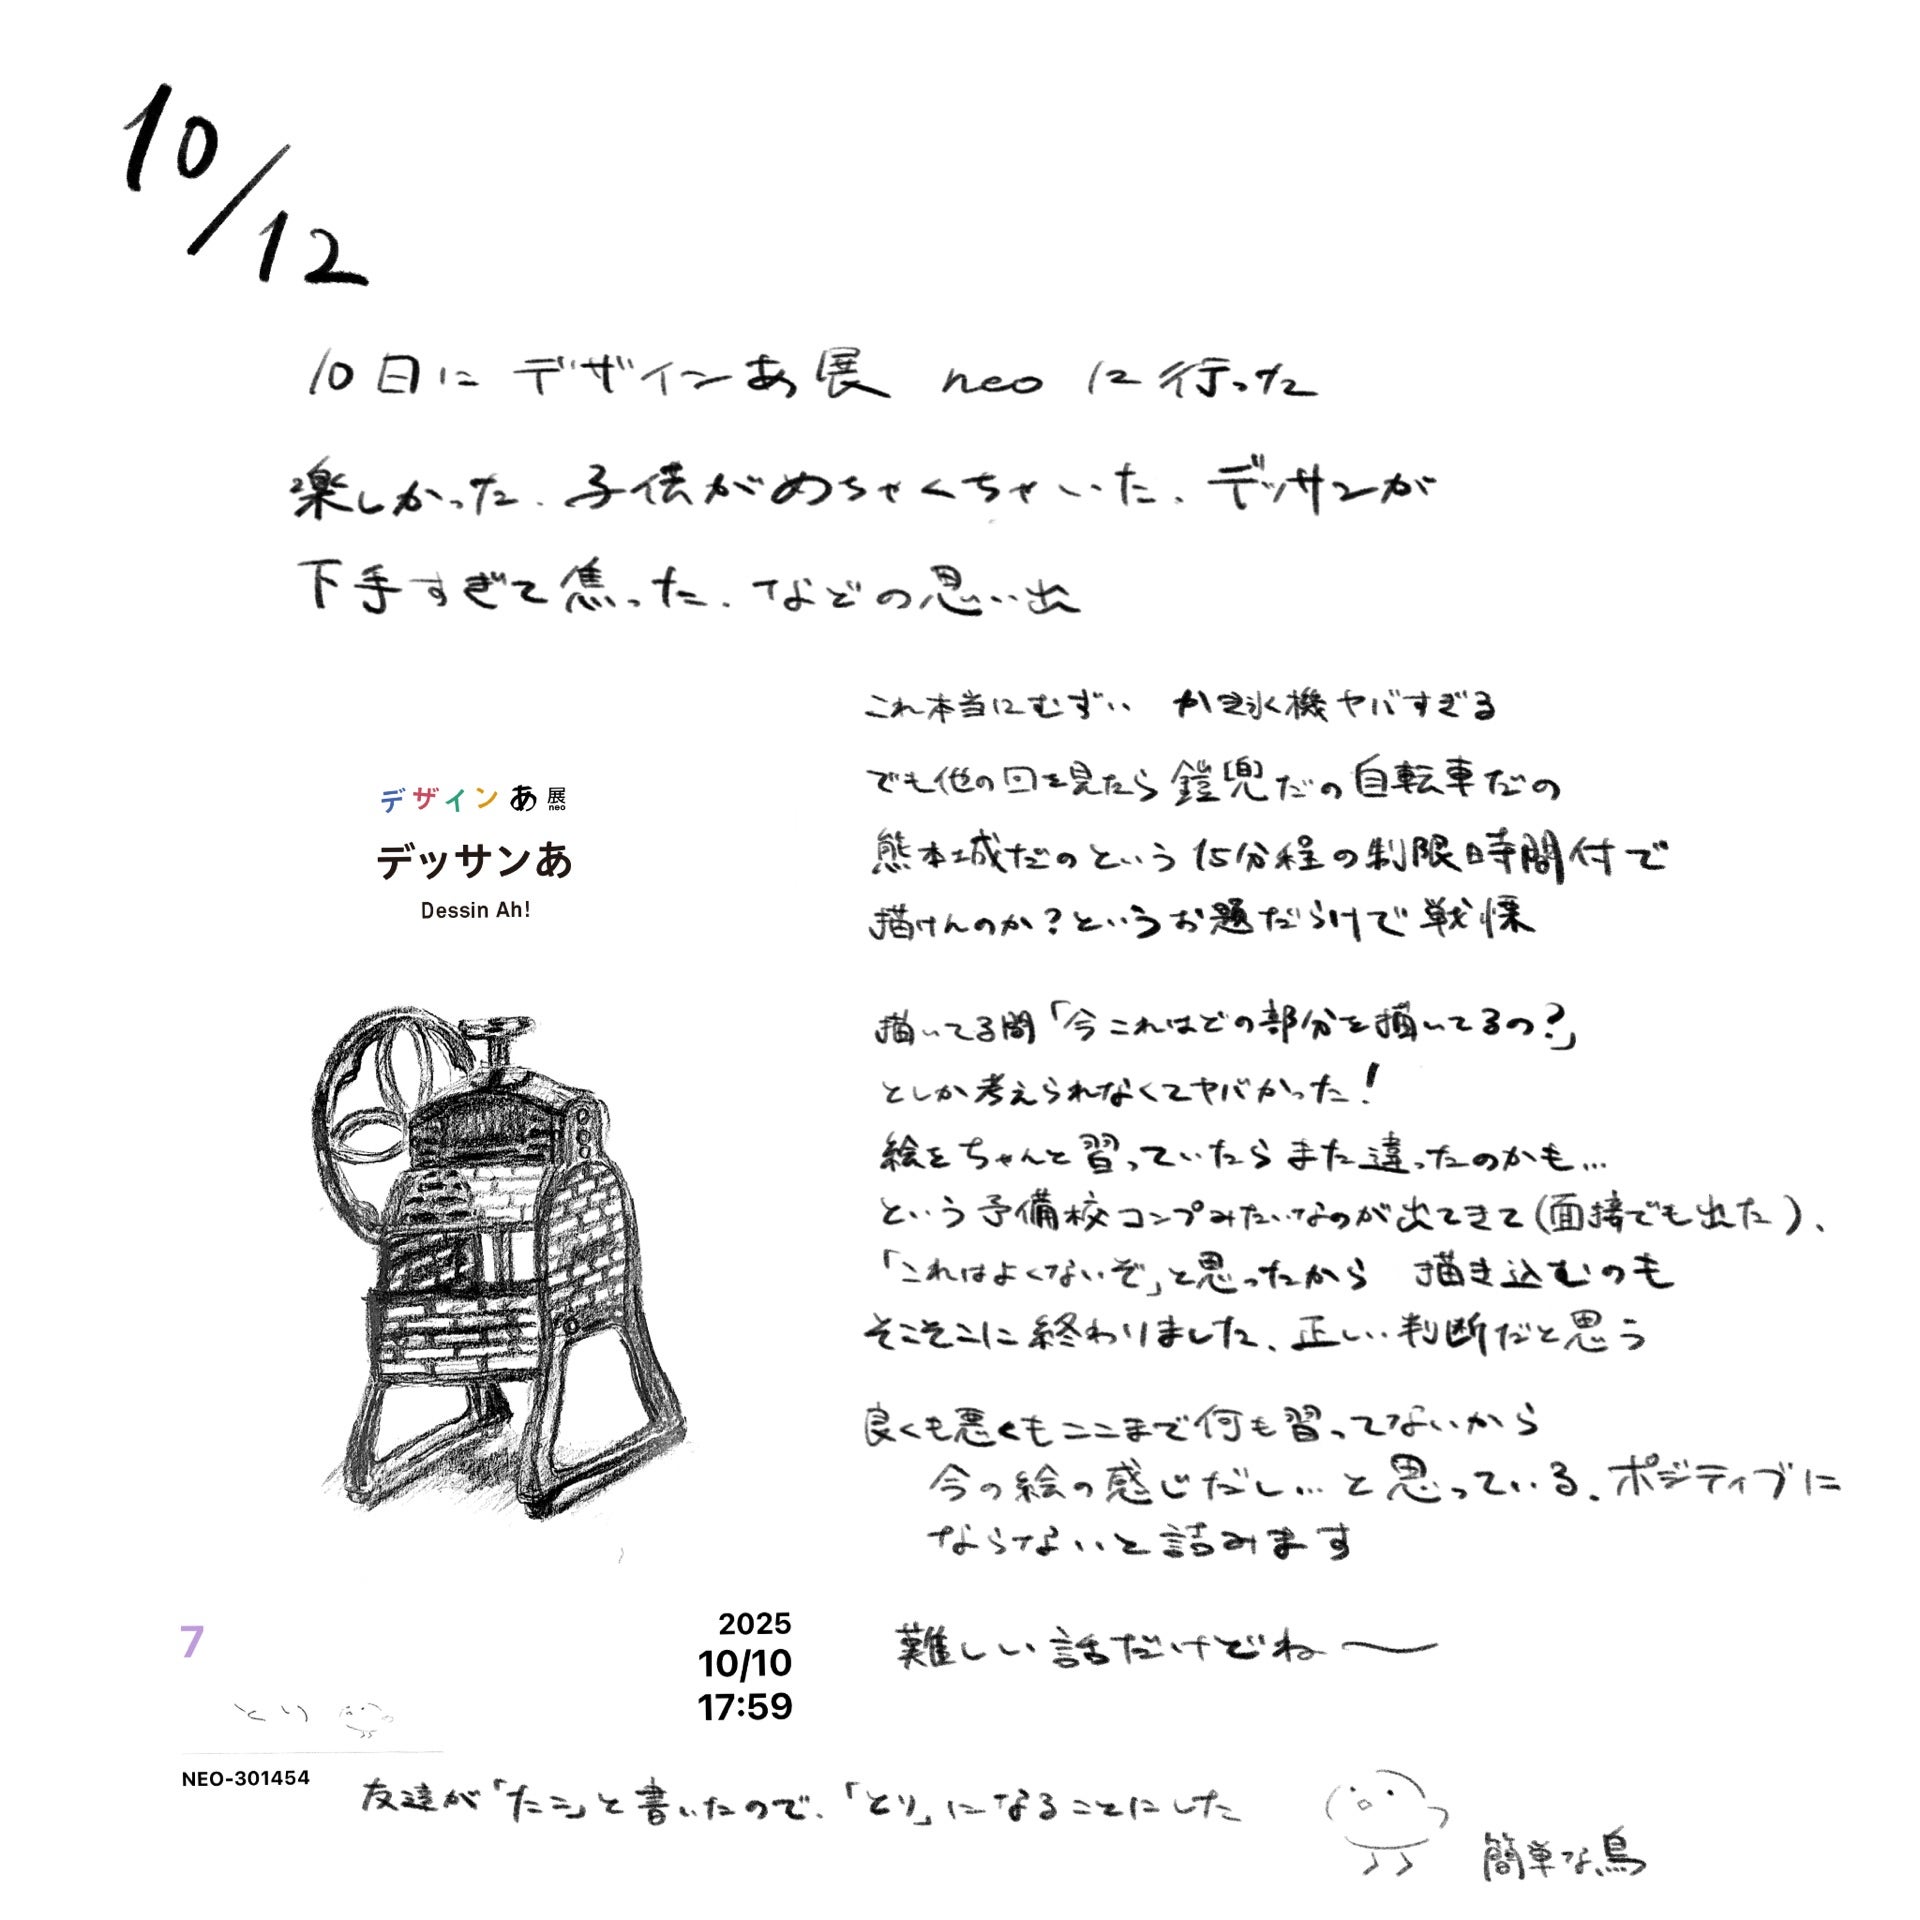 10/12
10日にデザインあ展 neo に行った
楽しかった、子供がめちゃくちゃいた、デッサンが
下手すぎて焦った、などの思い出
デザインあ展neo
デッサンあ
Dessin Ah!
7
2025
10/10
17:59
とり
NEO-301454
これ本当にむずい かき氷機ヤバすぎる
でも他の回を見たら鎧兜だの自転車だの
熊本城だのという15分程の制限時間付で
描けんのか?というお題だらけで戦慄
描いてる間「今これはどの部分を描いてるの?」
としか考えられなくてヤバかった!
絵をちゃんと習っていたらまた違ったのかも…
という予備校コンプみたいなのが出てきて(面接でも出た)、
「これはよくないぞ」と思ったから 描き込むのも
そこそこに終わりました、正しい判断だと思う
良くも悪くもここまで何も習ってないから
今の絵の感じだし…と思っている、ポジティブに
ならないと詰みます
難しい話だけどね〜
友達が「たこ」と書いたので、「とり」になることにした
簡単な鳥